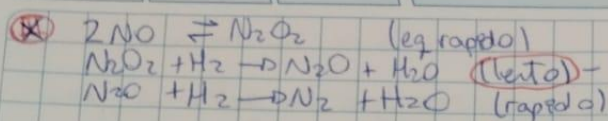 (X) 2NO ⇌ N2O2 (eq rapido)
N2O2 + H2 → N2O + H2O (lento) -
N2O + H2 → N2 + H2O (rapido)